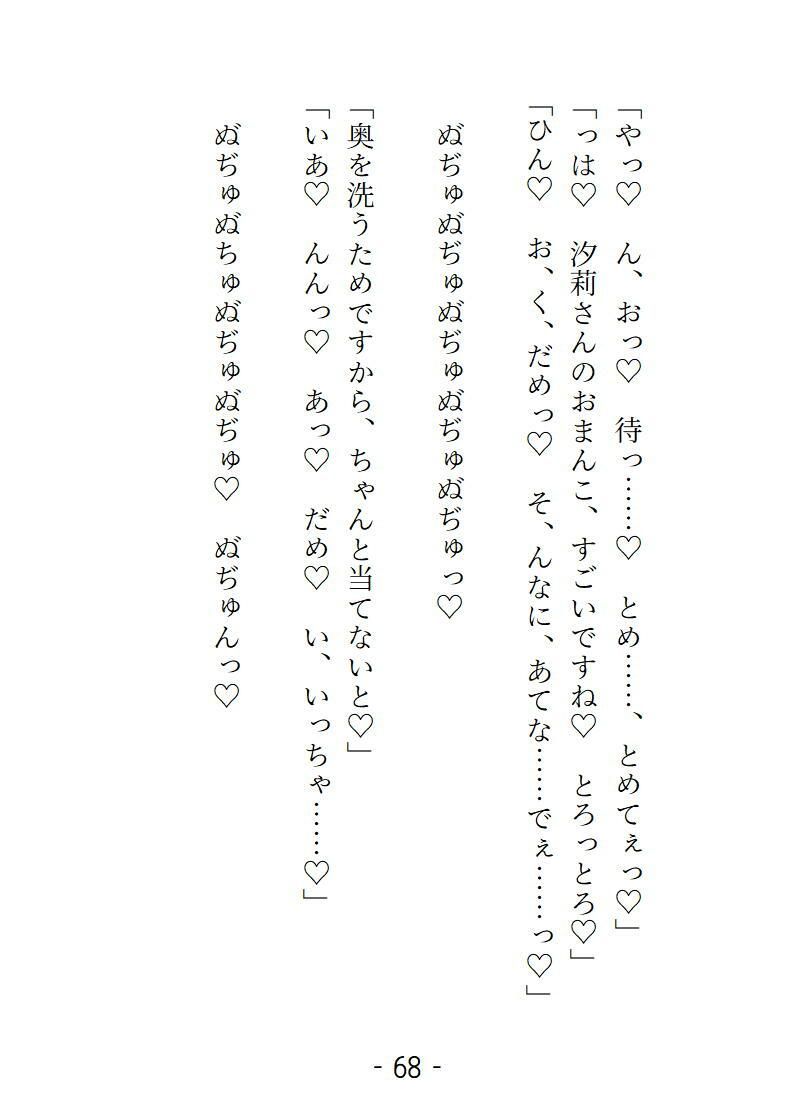 「やっ♡　ん、おっ♡　待っ……♡　とめ……、とめてぇっ♡」
「っは♡　汐莉さんのおまんこ、すごいですね♡　とろっとろ♡」
「ひん♡　お、く、だめっ♡　そ、んなに、あてな……でぇ……っ♡」
ぬ゛ぢゅぬ゛ぢゅぬ゛ぢゅぬ゛ぢゅぬ゛ぢゅっ♡
「奥を洗うためですから、ちゃんと当てないと♡」
「いあ♡　んんっ♡　あっ♡　だめ♡　い、いっちゃ……♡」
ぬ゛ぢゅぬ゛ちゅぬ゛ぢゅぬ゛ぢゅ♡　ぬ゛ぢゅんっ♡
- 68 -